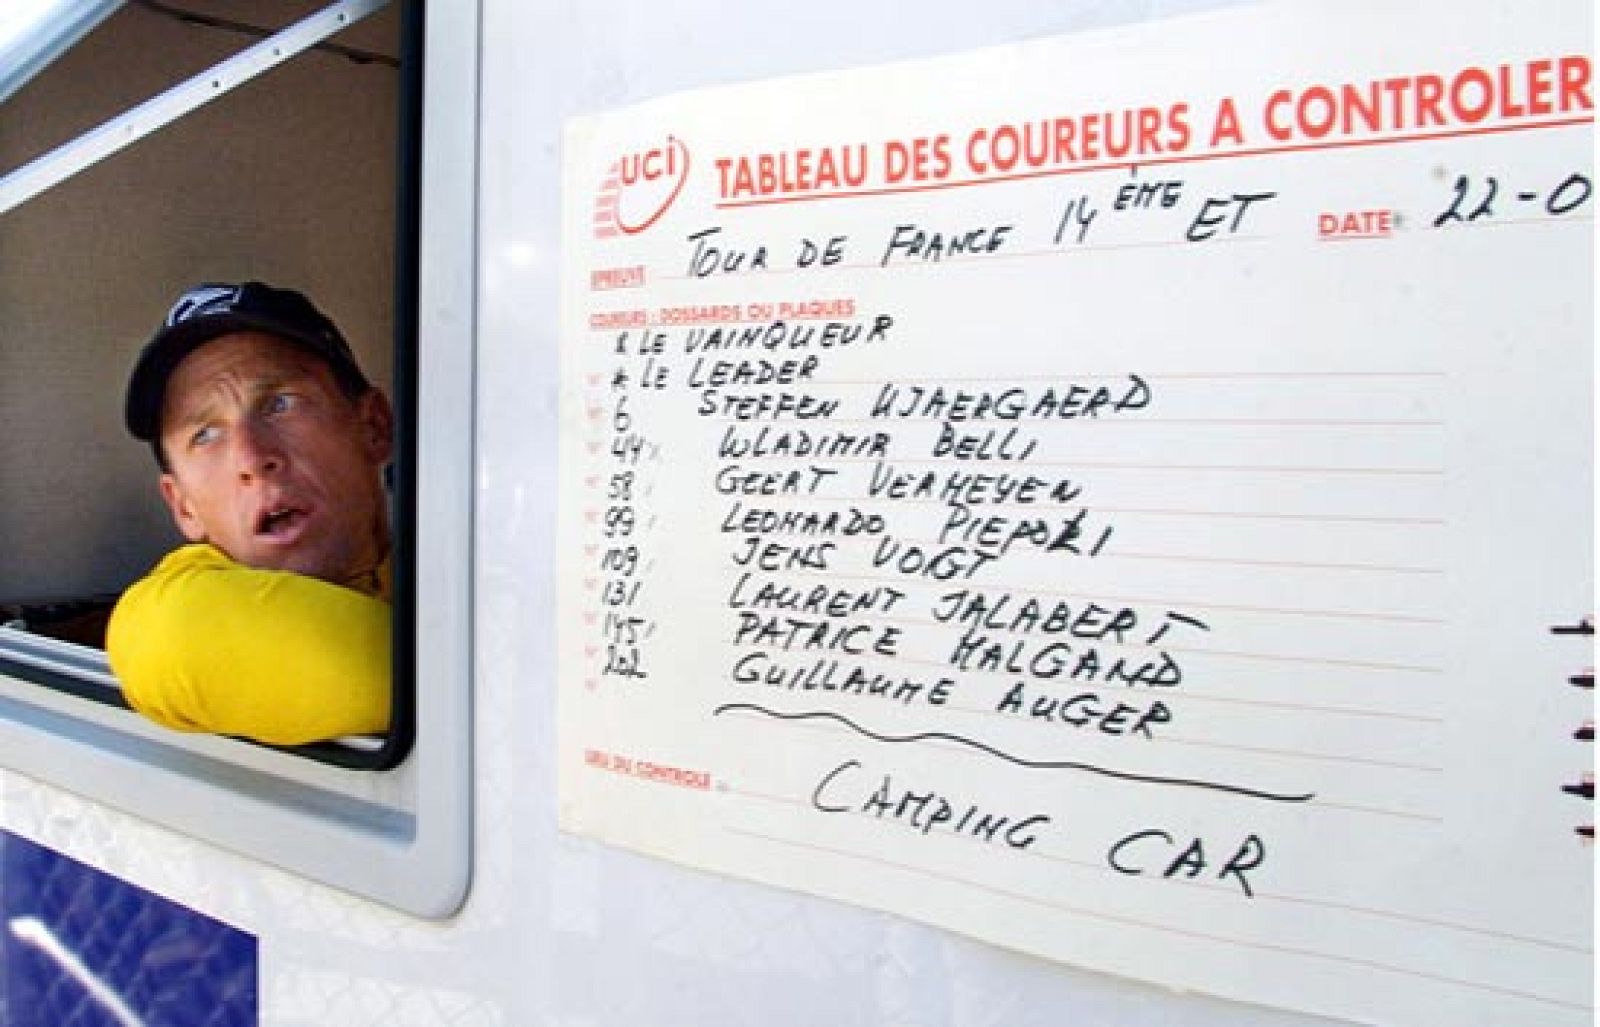 UCI
TABLEAU DES COUREURS A CONTROLER
EPREUVE TOUR DE FRANCE 14 ÈME ET DATE 22-0
COUREURS : DOSSARDS OU PLAQUES
LE VAINQUEUR
LE LEADER
6 STEFFEN KJAERGAERD
44 WLADIMIR BELLI
58 GEERT VERHEYEN
99 LEONARDO PIEPOLI
109 JENS VOIGT
131 LAURENT JALABERT
145 PATRICE HALGAND
202 GUILLAUME AUGER
LIEU DU CONTROLE CAMPING CAR